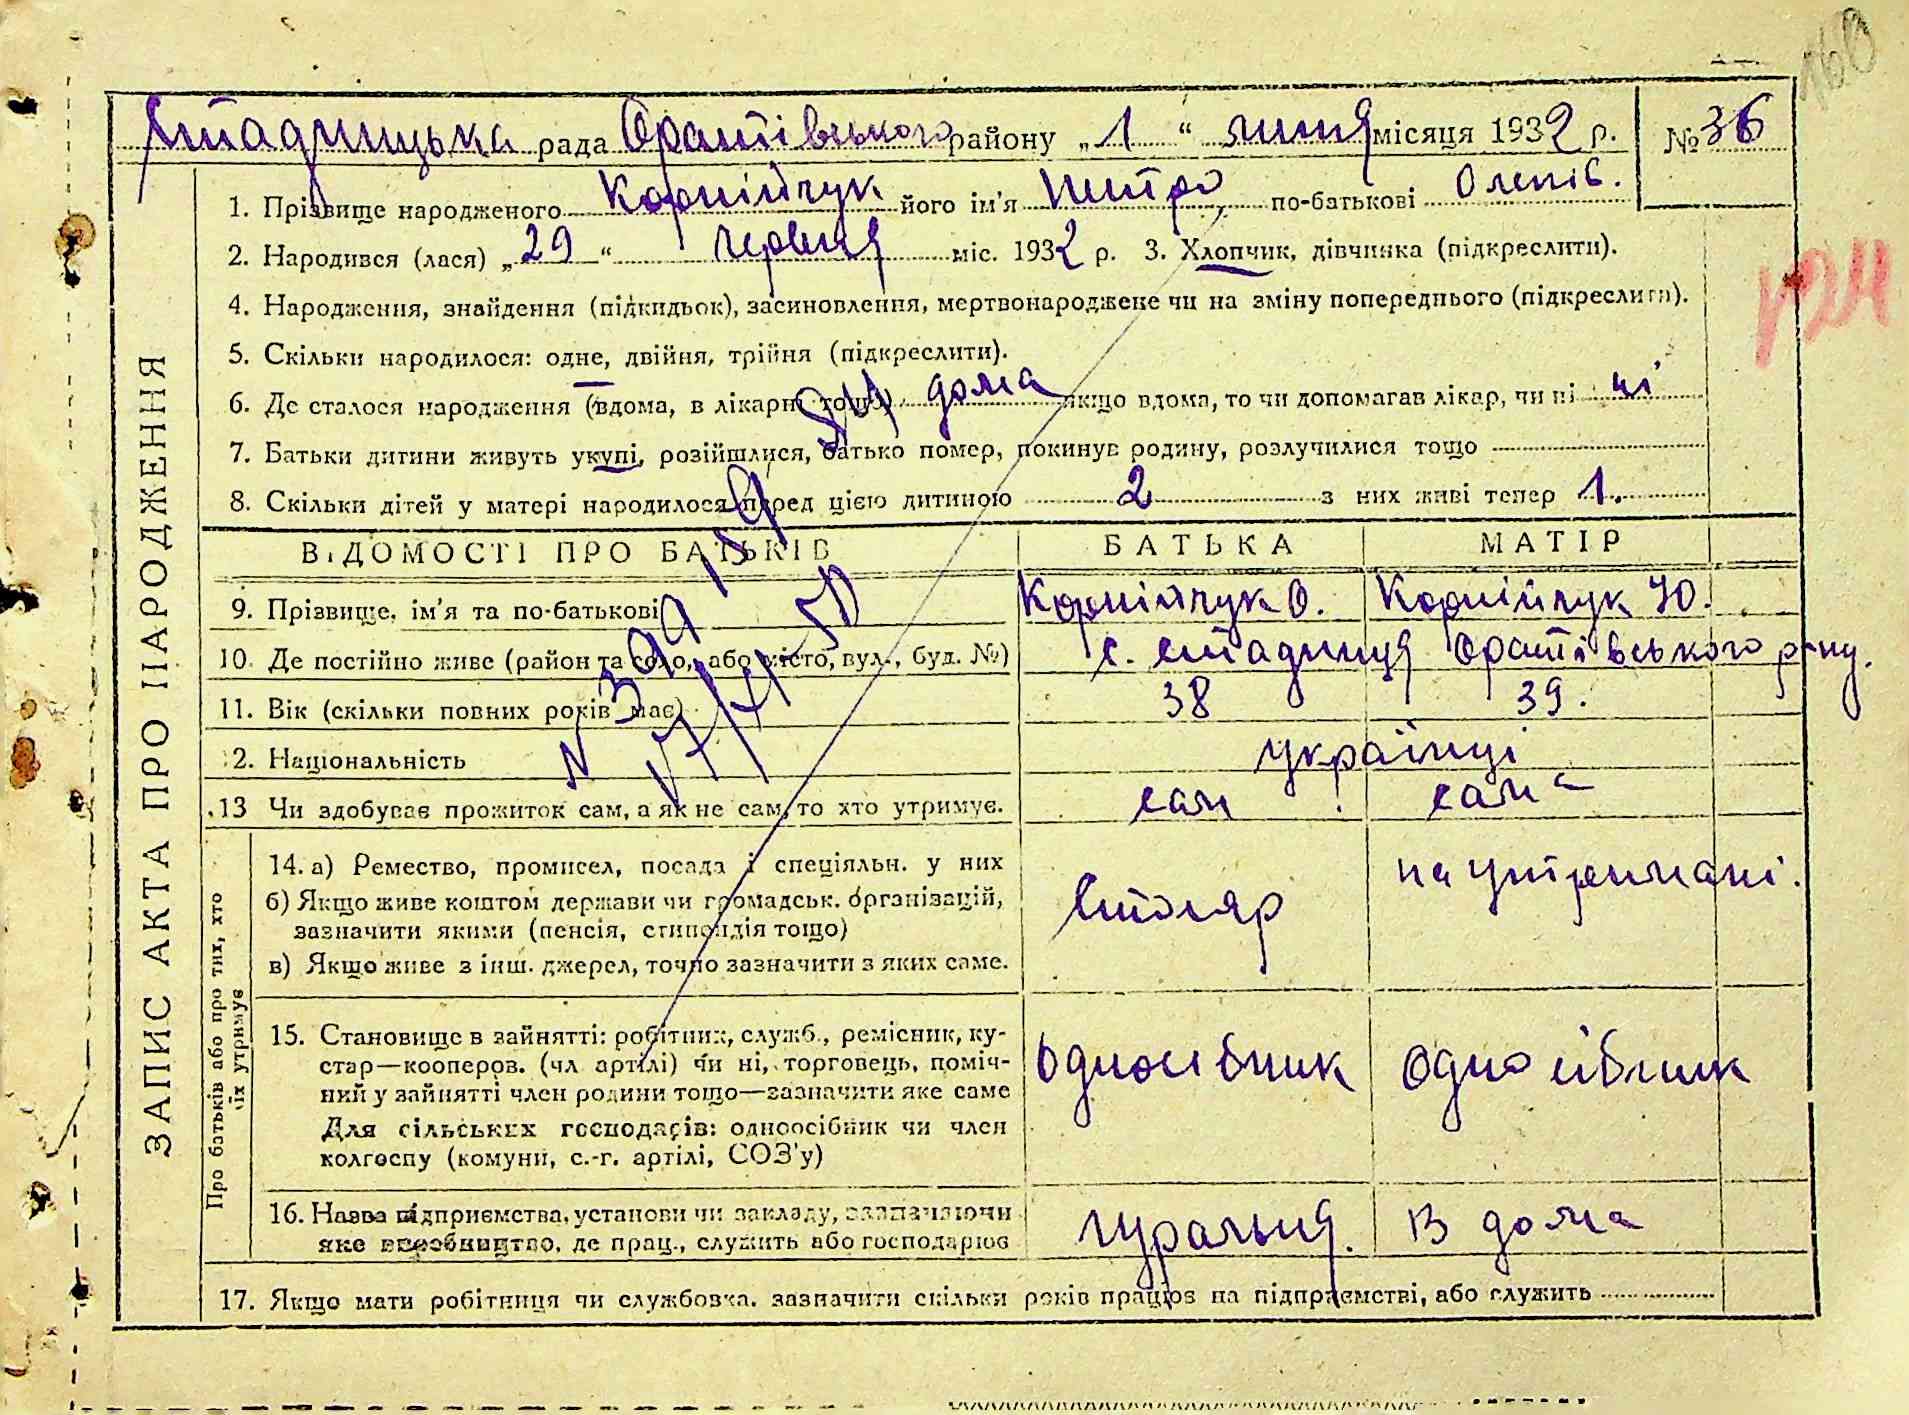 160
Стадницька рада Оратівського району „1“ липня місяця 1932 р. № 36
1. Прізвище народженого Корнійчук його ім'я Петро, по-батькові
2. Народився (лася) „29“ червня міс. 1932 р. 3. Хлопчик, дівчинка (підкреслити).
4. Народження, знайдення (підкидьок), засиновлення, мертвонароджене чи на зміну попереднього (підкреслити).
5. Скільки народилося: одне, двійня, трійня (підкреслити).
6. Де сталося народження (вдома, в лікарні тощо) дома якщо вдома, то чи допомагав лікар, чи ні ні
7. Батьки дитини живуть укупі, розійшлися, батько помер, покинув родину, розлучилися тощо
8. Скільки дітей у матері народилося перед цією дитиною 2 з них живі тепер 1.
ВІДОМОСТІ ПРО БАТЬКІВ БАТЬКА МАТІР
9. Прізвище, ім'я та по-батькові Корнійчук О. Корнійчук Ю.
10. Де постійно живе (район та село, або місто, вул., буд. №) с. Стадниця Оратівського р-ну.
11. Вік (скільки повних років має) 38 39.
12. Національність українці
13 Чи здобуває прожиток сам, а як не сам, то хто утримує. сам сама
ЗАПИС АКТА ПРО НАРОДЖЕННЯ
Про батьків або про тих, хто їх утримує
14. а) Ремество, промисел, посада і спеціяльн. у них Столяр на утремані.
б) Якщо живе коштом держави чи громадськ. організацій,
зазначити якими (пенсія, стипендія тощо)
в) Якщо живе з інш. джерел, точно зазначити з яких саме.
15. Становище в зайнятті: робітник, служб., ремісник, ку-
стар—кооперов. (чл артілі) чи ні, торговець, поміч- односібник односібник
ний у зайнятті член родини тощо—зазначити яке саме
Для сільських господарів: одноосібник чи член
колгоспу (комуни, с.-г. артілі, СОЗ'у)
16. Назва підприємства, установи чи закладу, зазначаючи
яке виробництво, де прац., служить або господарює гуральня. В дома
17. Якщо мати робітниця чи службовка, зазначити скільки років працює на підприємстві, або служить